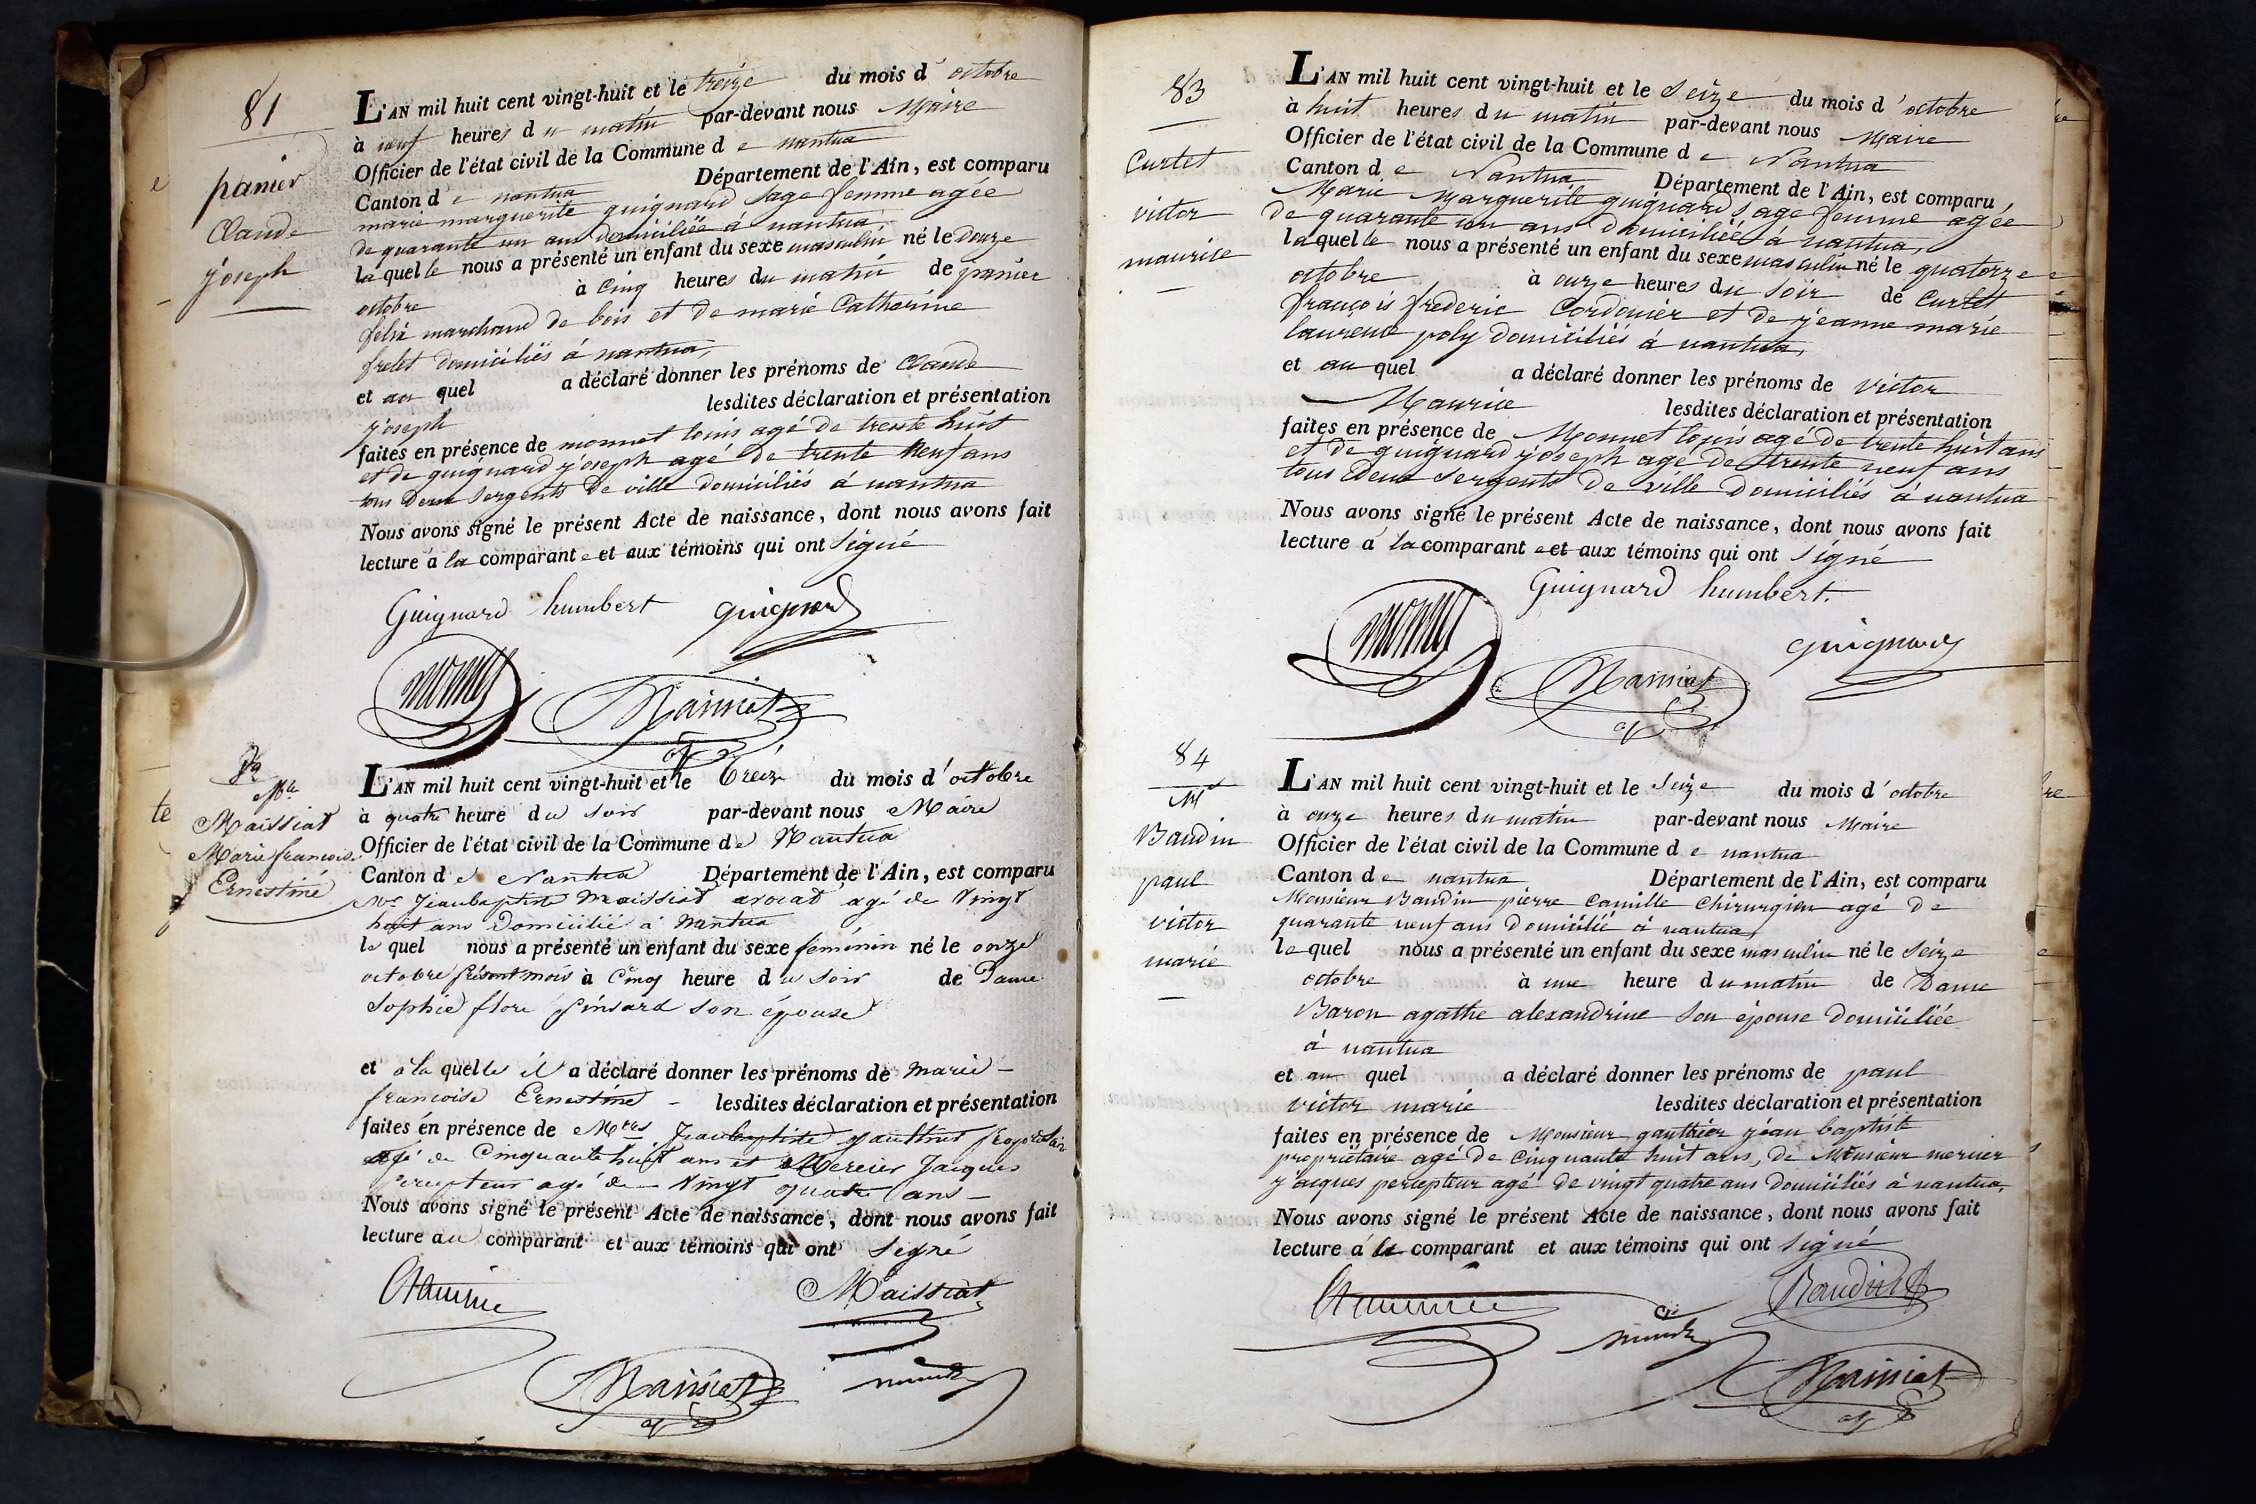 81
panier
Claude
joseph
L'AN mil huit cent vingt-huit et le treize du mois d'octobre
à neuf heures du matin par-devant nous Maire
Officier de l'état civil de la Commune de nantua
Canton de nantua Département de l'Ain, est comparu
marie marguerite guignard sage femme agée
de quarante un ans domiciliée à nantua
laquelle nous a présenté un enfant du sexe masculin né le douze
octobre à cinq heures du matin de panier
félix marchand de bois et de marie Catherine
frelet domiciliés à nantua,
et au quel a déclaré donner les prénoms de Claude
joseph lesdites déclaration et présentation
faites en présence de monnet louis agé de trente huit
et de guignard joseph agé de trente neuf ans
tous deux sergents de ville domiciliés à nantua
Nous avons signé le présent Acte de naissance, dont nous avons fait
lecture à la comparante et aux témoins qui ont signé
Guignard humbert guignard
monnet
Maissiat
Mlle
Maissiat
Marie françoise
Ernestine
L'AN mil huit cent vingt-huit et le treize du mois d'octobre
à quatre heure du soir par-devant nous Maire
Officier de l'état civil de la Commune de Nantua
Canton de Nantua Département de l'Ain, est comparu
Mr Jeanbaptiste Maissiat avocat agé de vingt
huit ans Domicilié à Nantua
le quel nous a présenté un enfant du sexe féminin né le onze
octobre présent mois à Cinq heure du soir de Dame
Sophie flore pinsard son épouse
et à la quelle il a déclaré donner les prénoms de marie-
francoise Ernestine - lesdites déclaration et présentation
faites en présence de Mres Jeanbaptiste gauthier propriétaire
agé de Cinquante huit ans et Mercier Jacques
percepteur agé de - vingt quatre ans -
Nous avons signé le présent Acte de naissance, dont nous avons fait
lecture au comparant et aux témoins qui ont signé
Maissiat
Maissiat
83
Curtet
victor
maurice
L'AN mil huit cent vingt-huit et le seize du mois d'octobre
à huit heures du matin par-devant nous Maire
Officier de l'état civil de la Commune de Nantua
Canton de Nantua Département de l'Ain, est comparu
Marie Marguerite guignard sage femme agée
de quarante un ans domiciliée à nantua,
laquelle nous a présenté un enfant du sexe masculin né le quatorze
octobre à onze heures du soir de Curtet
françois frederic Cordonier et de jeanne marie
laurence poly domiciliés à nantua,
et au quel a déclaré donner les prénoms de victor
Maurice lesdites déclaration et présentation
faites en présence de Monnet louis agé de trente huit ans
et de guignard joseph agé de trente neuf ans
tous deux sergents de ville domiciliés à nantua
Nous avons signé le présent Acte de naissance, dont nous avons fait
lecture à la comparante et aux témoins qui ont signé
Guignard humbert.
monnet
guignard
Maissiat
84
Mr
Baudin
paul
victor
marie
L'AN mil huit cent vingt-huit et le seize du mois d'octobre
à onze heures du matin par-devant nous Maire
Officier de l'état civil de la Commune de nantua
Canton de nantua Département de l'Ain, est comparu
Monsieur Baudin pierre Camille Chirurgien agé de
quarante neuf ans domicilié à nantua,
le quel nous a présenté un enfant du sexe masculin né le seize
octobre à une heure du matin de Dame
Baron agathe alexandrine son épouse domiciliée
à nantua
et au quel a déclaré donner les prénoms de paul
victor marie lesdites déclaration et présentation
faites en présence de Monsieur gauthier jean baptiste
propriétaire agé de cinquante huit ans, de Monsieur mercier
jacques percepteur agé de vingt quatre ans domiciliés à nantua,
Nous avons signé le présent Acte de naissance, dont nous avons fait
lecture à le comparant et aux témoins qui ont signé
Baudin
Maissiat